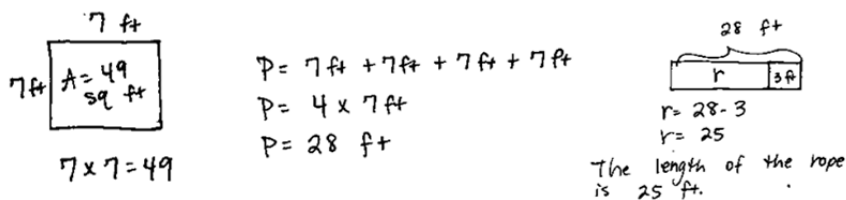 7 ft
7ft
A = 49
sq ft
7 x 7 = 49
P = 7ft + 7ft + 7ft + 7ft
P = 4 x 7ft
P = 28 ft
28 ft
r
3 ft
r = 28 - 3
r = 25
The length of the rope
is 25 ft.